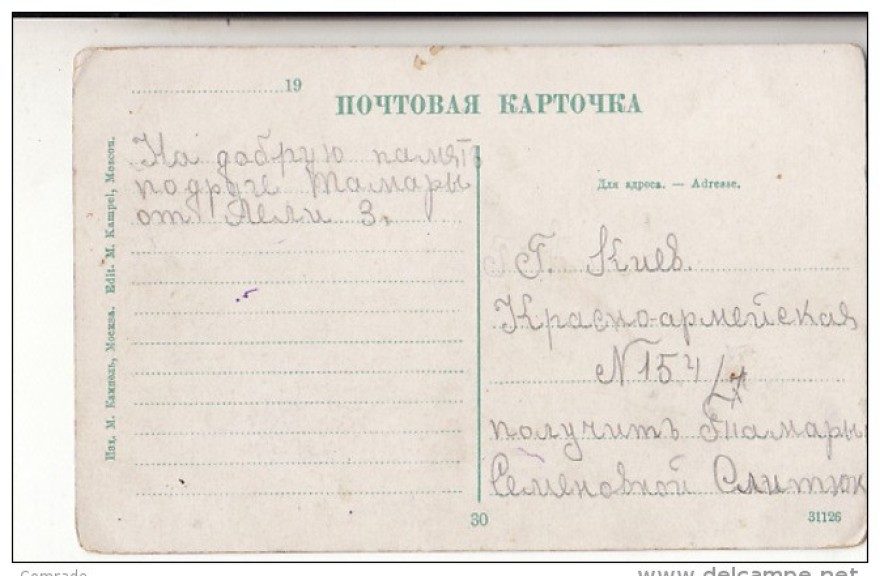 19
ПОЧТОВАЯ КАРТОЧКА
На добрую память
подруге Тамары
от Лели З.
Для адреса. — Adresse.
Г. Киев.
Красно-армейская
N 154/
получить Тамары
Семеновной Слитюк
Изд. М. Кампель, Москва. Edit. M. Kampel, Moscou.
30
31126
Comrade
www.delcampe.net